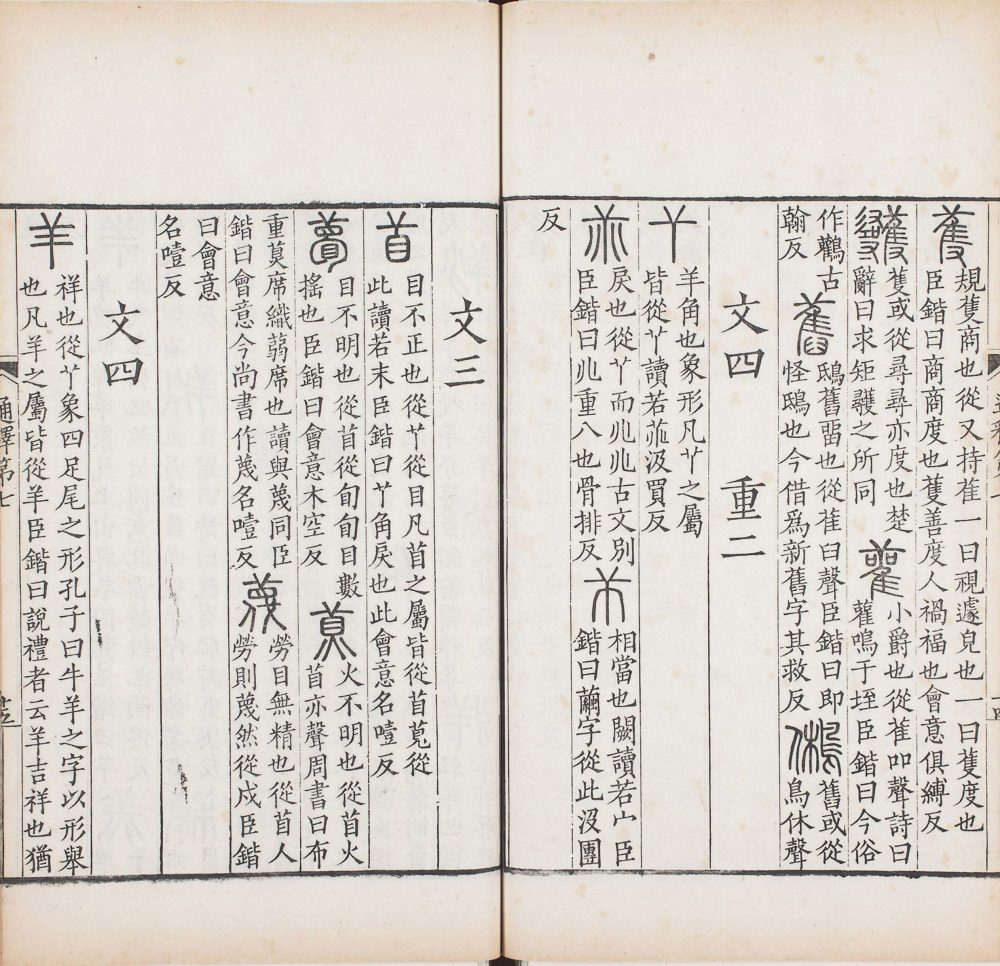 蒦 規蒦商也從又持萑一曰視遽皃也一曰蒦度也
臣鍇曰商商度也蒦善度人禍福也會意俱縛反
蒦或從尋尋亦度也楚
辭曰求矩彠之所同
雚 小爵也從萑吅聲詩曰
雚鳴于垤臣鍇曰今俗
作鸛古
翰反
舊 鴟舊畱也從萑臼聲臣鍇曰即
怪鴟也今借爲新舊字其救反
鵂 舊或從
鳥休聲
文四 重二
𦫳 羊角也象形凡𦫳之屬
皆從𦫳讀若菲汲買反
𠁥 戾也從𦫳而𠔁𠔁古文別
臣鍇曰𠔁重八也骨排反
𦭝 相當也闕讀若宀臣
鍇曰繭字從此汲團
反
文三
𥄕 目不正也從𦫳從目凡𥄕之屬皆從𥄕莧從
此讀若末臣鍇曰𦫳角戾也此會意名噎反
瞢 目不明也從𥄕從旬旬目數
搖也臣鍇曰會意木空反
莫 火不明也從𥄕火
𥄕亦聲周書曰布
重莫席織蒻席也讀與蔑同臣
鍇曰會意今尚書作蔑名噎反
蔑 勞目無精也從𥄕人
勞則蔑然從戍臣鍇
曰會意
名噎反
文四
羊 祥也從𦫳象四足尾之形孔子曰牛羊之字以形舉
也凡羊之屬皆從羊臣鍇曰說禮者云羊吉祥也猶
通釋第七